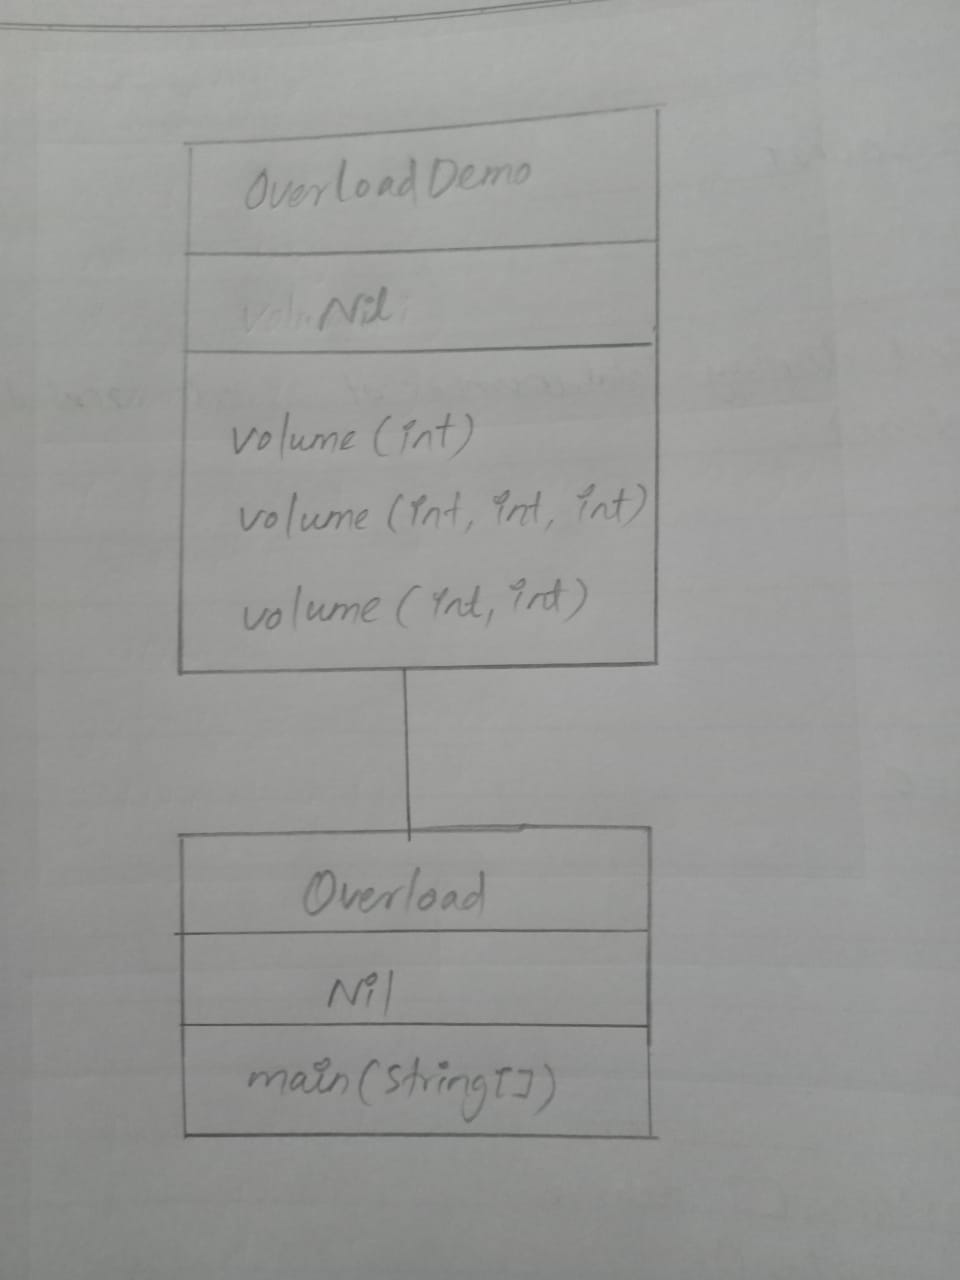 OverloadDemo
Nil
volume (int)
volume (int, int, int)
volume (int, int)
Overload
Nil
main(String[])